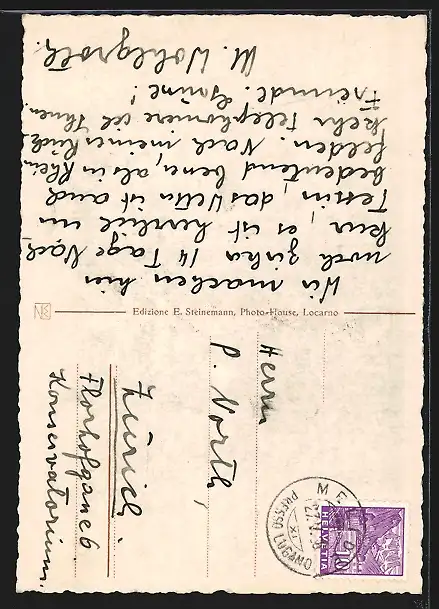 Wir machen hier
noch zirka 14 Tage
hier, es ist herrlich im
Tessin, das Wetter ist auch
bedeutend besser, als in Rhein-
felden. Nach meiner Rück-
kehr telephoniere ich Ihnen.
Freundl. Grüsse!
M. Wohlgroth.
Edizione E. Steinemann, Photo-House, Locarno
Herrn
P. North,
Zürich.
Florhofgasse 6
Konservatorium.
PRESSO LUGANO
HELVETIA
10